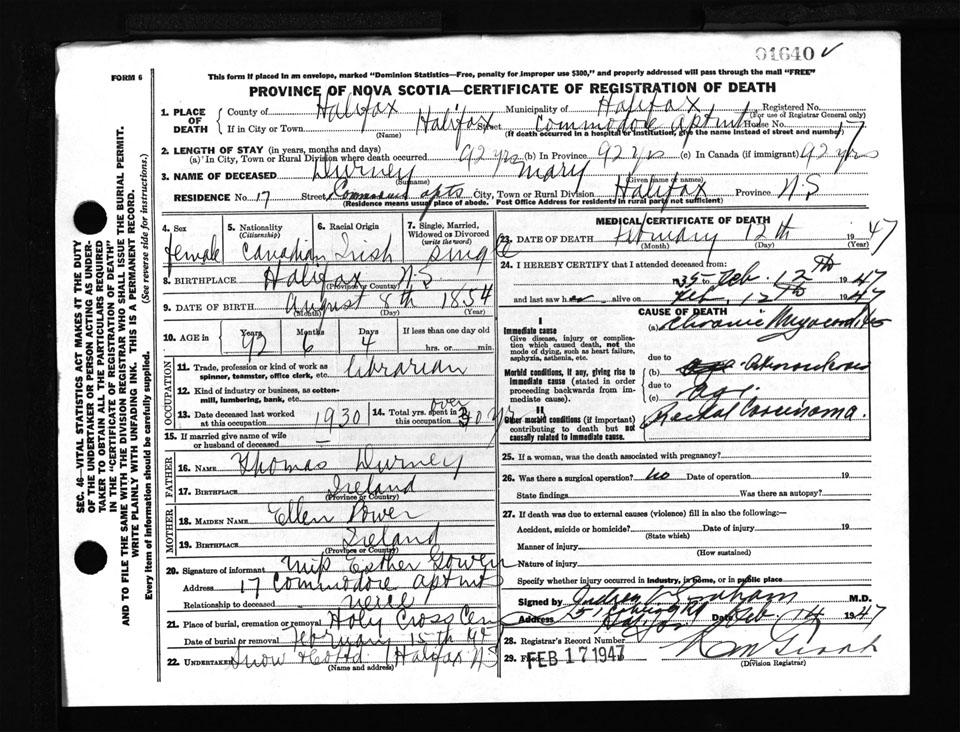 01640 ✓
FORM 6
This form if placed in an envelope, marked "Dominion Statistics—Free, penalty for improper use $300," and properly addressed will pass through the mail "FREE"
PROVINCE OF NOVA SCOTIA—CERTIFICATE OF REGISTRATION OF DEATH
1. PLACE OF DEATH
County of Halifax Municipality of Halifax Registered No.
(For use of Registrar General only)
If in City or Town Halifax Street Commodore aptmts House No. 17
(Name) (If death occurred in a hospital or institution, give the name instead of street and number)
2. LENGTH OF STAY (in years, months and days)
(a) In City, Town or Rural Division where death occurred 92 yrs (b) In Province 92 yrs (c) In Canada (if immigrant) 92 yrs
3. NAME OF DECEASED Durney Mary
(Surname) (Given name or names)
RESIDENCE No. 17 Street apts City, Town or Rural Division Halifax Province N.S
(Residence means usual place of abode. Post Office Address for residents in rural parts not sufficient)
4. Sex female
5. Nationality (Citizenship) Canadian
6. Racial Origin Irish
7. Single, Married, Widowed or Divorced (write the word) single
8. BIRTHPLACE Halifax N.S
(Province or Country)
9. DATE OF BIRTH August 8th 1854
(Month) (Day) (Year)
10. AGE in Years Months Days If less than one day old
92 6 4 hrs. or min.
OCCUPATION
11. Trade, profession or kind of work as spinner, teamster, office clerk, etc. librarian
12. Kind of industry or business, as cotton-mill, lumbering, bank, etc.
13. Date deceased last worked at this occupation 1930
14. Total yrs. spent in this occupation over 30 yr
15. If married give name of wife or husband of deceased —
FATHER
16. NAME Thomas Durney
17. BIRTHPLACE Ireland
(Province or Country)
MOTHER
18. MAIDEN NAME Ellen Power
19. BIRTHPLACE Ireland
(Province or Country)
20. Signature of informant Miss Esther
Address 17 Commodore aptmts
Relationship to deceased niece
21. Place of burial, cremation or removal Holy Cross Cem
Date of burial or removal February 15th 47
22. UNDERTAKER Snow & Co Ltd Halifax N.S
(Name and address)
MEDICAL CERTIFICATE OF DEATH
23. DATE OF DEATH February 12th 1947
(Month) (Day) (Year)
24. I HEREBY CERTIFY that I attended deceased from:
35 to Feb. 12th 1947
and last saw her alive on Feb. 12th 1947
CAUSE OF DEATH
I
Immediate cause
Give disease, injury or complication which caused death, not the mode of dying, such as heart failure, asphyxia, asthenia, etc.
(a) Chronic Myocarditis
due to
Morbid conditions, if any, giving rise to immediate cause (stated in order proceeding backwards from immediate).
(b)
due to
(c) Age.
II
Other morbid conditions (if important) contributing to death but not causally related to immediate cause.
Rectal Carcinoma.
25. If a woman, was the death associated with pregnancy?
26. Was there a surgical operation? No Date of operation 19
State findings Was there an autopsy?
27. If death was due to external causes (violence) fill in also the following:—
Accident, suicide or homicide? Date of injury 19
(State which)
Manner of injury
(How sustained)
Nature of injury
Specify whether injury occurred in industry, in home, or in public place
Signed by Graham M.D.
Address Halifax Date Feb 14 1947
28. Registrar's Record Number
29. Filed FEB 17 1947
(Division Registrar)
SEC. 46—VITAL STATISTICS ACT MAKES IT THE DUTY
OF THE UNDERTAKER OR PERSON ACTING AS UNDER-
TAKER TO OBTAIN ALL THE PARTICULARS REQUIRED
IN THE "CERTIFICATE OF REGISTRATION OF DEATH"
AND TO FILE THE SAME WITH THE DIVISION REGISTRAR WHO SHALL ISSUE THE BURIAL PERMIT.
WRITE PLAINLY WITH UNFADING INK. THIS IS A PERMANENT RECORD.
Every item of information should be carefully supplied. (See reverse side for instructions.)